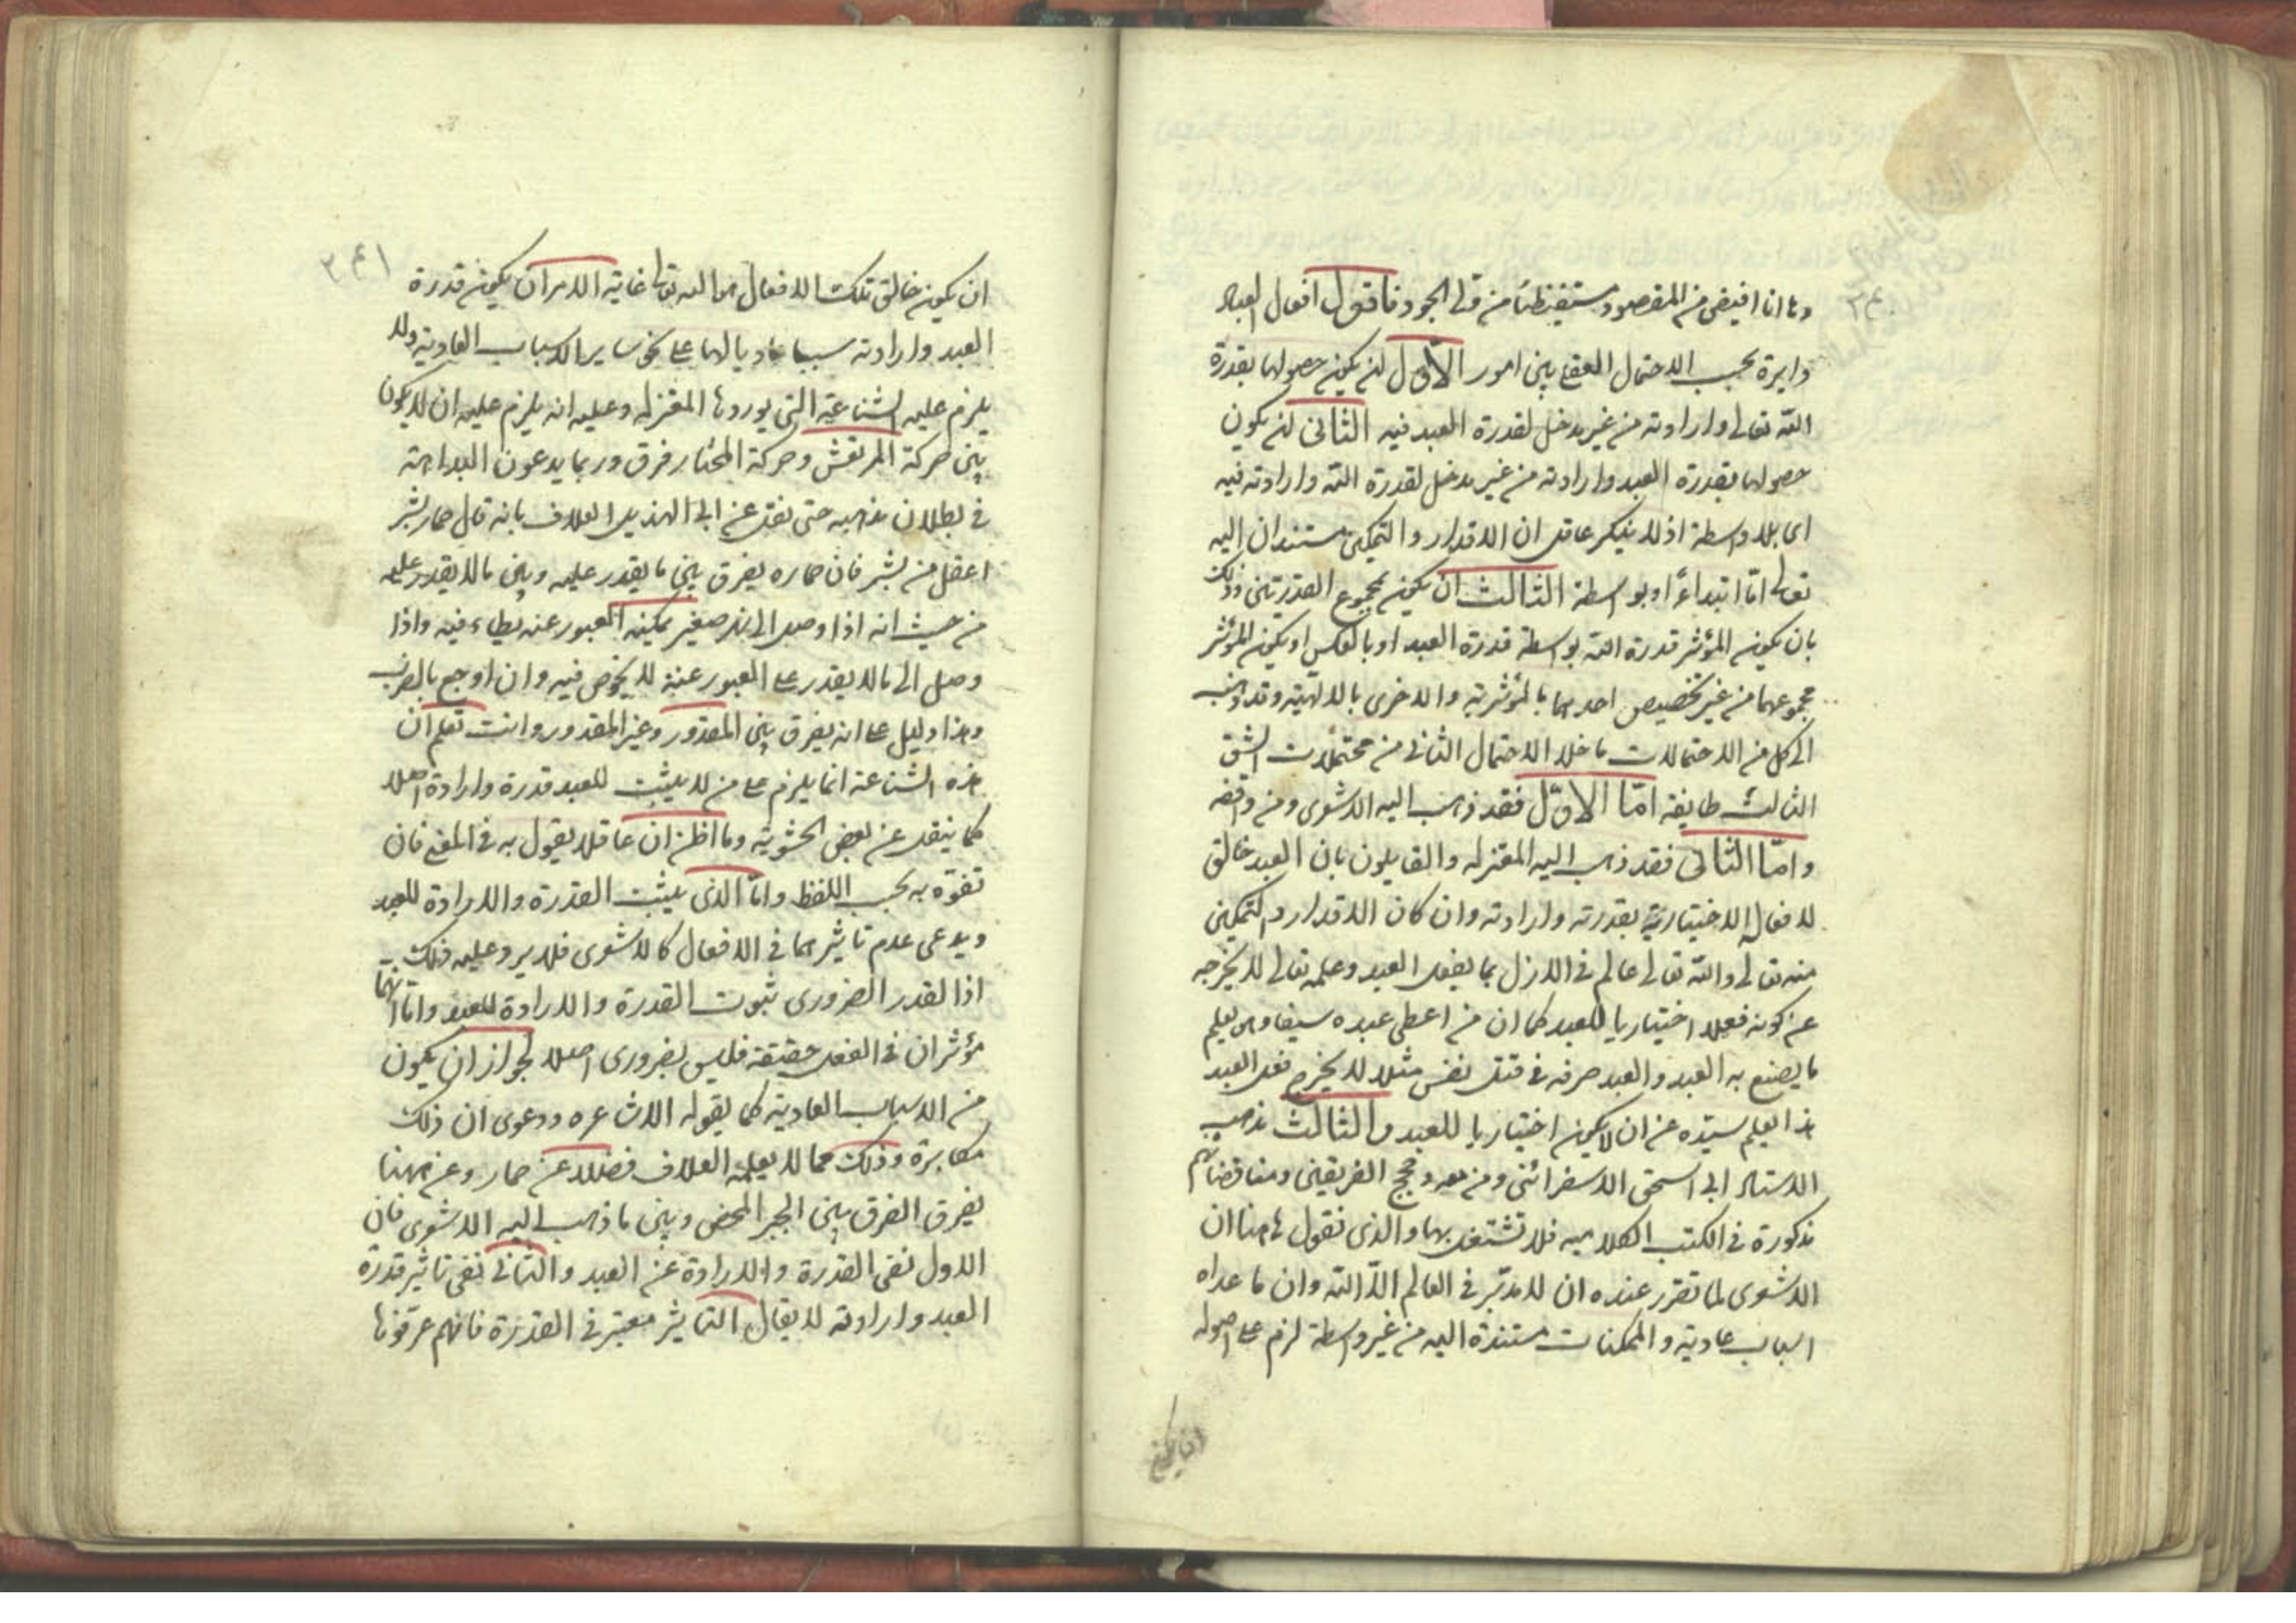 وها انا افيض من المقصود مستفيظا من ولى الجود فاقول افعال العباد
دايرة بحسب الاحتمال العقلي بين امور الاول ان يكون حصولها بقدرة
الله تعالى وارادته من غير مدخل لقدرة العبد فيه الثاني ان يكون
حصولها بقدرة العبد وارادته من غير مدخل لقدرة الله وارادته فيه
اى بلا واسطة اذ لا ينكر عاقل ان الاقدار والتمكين مستندان اليه
تعالى امّا ابتداءً او بواسطة الثالث ان يكون بمجموع القدرتين وذلك
بان يكون المؤثر قدرة الله بواسطة قدرة العبد او بالعكس او يكون المؤثر
مجموعهما من غير تخصيص احديهما بالمؤثرية والاخرى بالالهية وقد ذهب
الى كل من الاحتمالات ما خلا الاحتمال الثاني من محتملات الشق
الثالث طايفة امّا الاوّل فقد ذهب اليه الاشعرى ومن وافقه
وامّا الثاني فقد ذهب اليه المعتزله والقايلون بان العبد خالق
لافعاله الاختيارية بقدرته وارادته وان كان الاقدار والتمكين
منه تعالى والله تعالى عالم في الازل بما يفعل العبد وعلمه تعالى لا يخرجه
عن كونه فعلا اختياريا للعبد كما ان من اعطى عبده سيفا وهو يعلم
ما يصنع به العبد والعبد صرفه في قتل نفس مثلا لا يخرج فعل العبد
بهذا العلم سيّده عن ان يكون اختياريا للعبد والثالث مذهب
الاستاد ابى اسحق الاسفرائنى ومن معه وحجج الفريقين ومناقضاتهم
مذكورة في الكتب الكلاميه فلا نشتغل بها والذى نقول هاهنا ان
الاشعرى لما تقرر عنده ان لا مدبّر في العالم الّا الله وان ما عداه
اسباب عادية والممكنات مستندة اليه من غير واسطة لزم على اصوله
ان يكون
٢٤١
ان يكون خالق تلك الافعال هو الله تعالى غاية الامر ان يكون قدرة
العبد وارادته سببا عاديا لها على نحو ساير الاسباب العادية ولا
يلزم عليه الشناعة التى يوردها المعتزله وعليه انه يلزم عليه ان لا يكون
بين حركة المرتعش وحركة المختار فرق وربما يدعون البداهة
في بطلان مذهبه حتى نقل عن ابى الهذيل العلاف بانه قال حمار بشر
اعقل من بشر فان حماره يفرق بين ما يقدر عليه وبين ما لا يقدر عليه
من حيث انه اذا وصل الى نهر صغير يمكنه العبور عنه يطاء فيه واذا
وصل الى ما لا يقدر على العبور عنه لا يخوض فيه وان اوجع بالضرب
وهذا دليل على انه يفرق بين المقدور وغير المقدور وانت تعلم ان
هذه الشناعة انما يلزم على من لا يثبت للعبد قدرة وارادة اصلا
كما ينقل عن بعض الحشوية وما اظن ان عاقلا يقول به في المعنى فان
تفوّه به بحسب اللفظ وامّا الذى يثبت القدرة والارادة للعبد
ويدعى عدم تاثيرهما في الافعال كالاشعرى فلا يرد عليه ذلك
اذ القدر الضرورى ثبوت القدرة والارادة للعبد وامّا انهما
مؤثران في الفعل حقيقة فليس بضرورى اصلا لجواز ان يكون
من الاسباب العادية كما يقوله الاشاعره ودعوى ان ذلك
مكابرة وذلك مما لا يعلمه العلاف فضلا عن حمار وعن ههنا
يفرق الفرق بين الجبر المحض وبين ما ذهب اليه الاشعرى فان
الاول نفى القدرة والارادة عن العبد والثاني نفى تاثير قدرة
العبد وارادته لا يقال التاثير معتبر في القدرة فانهم عرّفوها